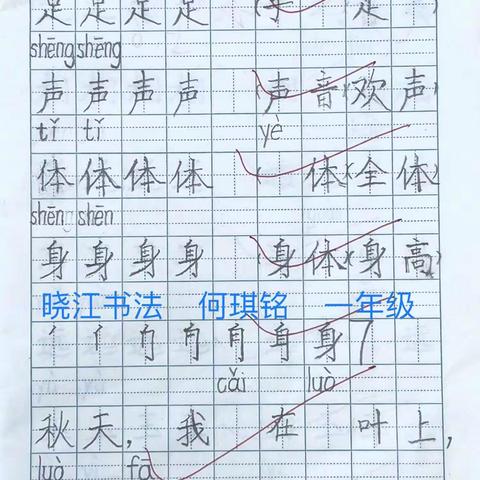 足 足 足 足 (手 足)
shēng shēng
声 声 声 声 (声 音)(欢 声)
tǐ tǐ yè
体 体 体 体 ( 体)(全 体)
shēn shēn
身 身 身 身 (身 体)(身 高)
晓江书法 何琪铭 一年级
身 7
cǎi luò
秋 天， 我 在 叶 上，
luò fā